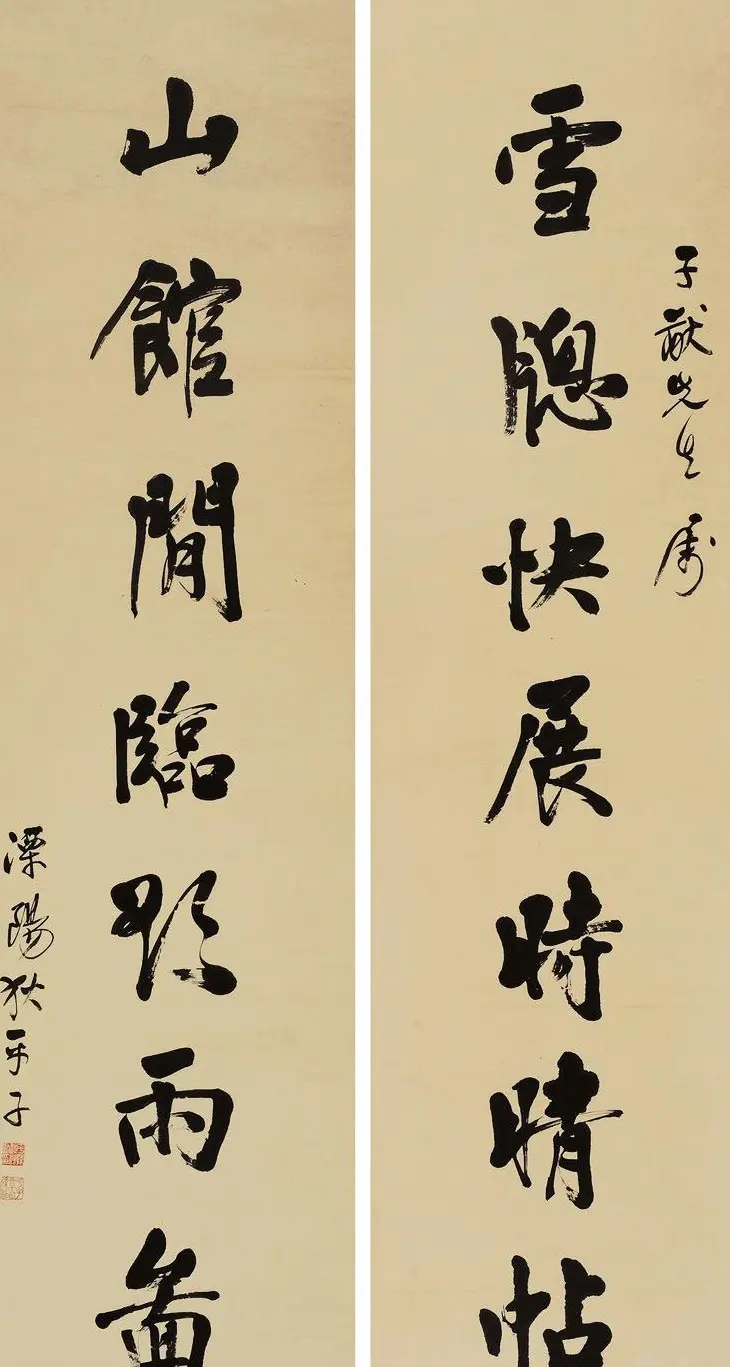 子猷先生屬
雪牕快展時晴帖
山館閒臨欲雨啚
溧陽狄平子